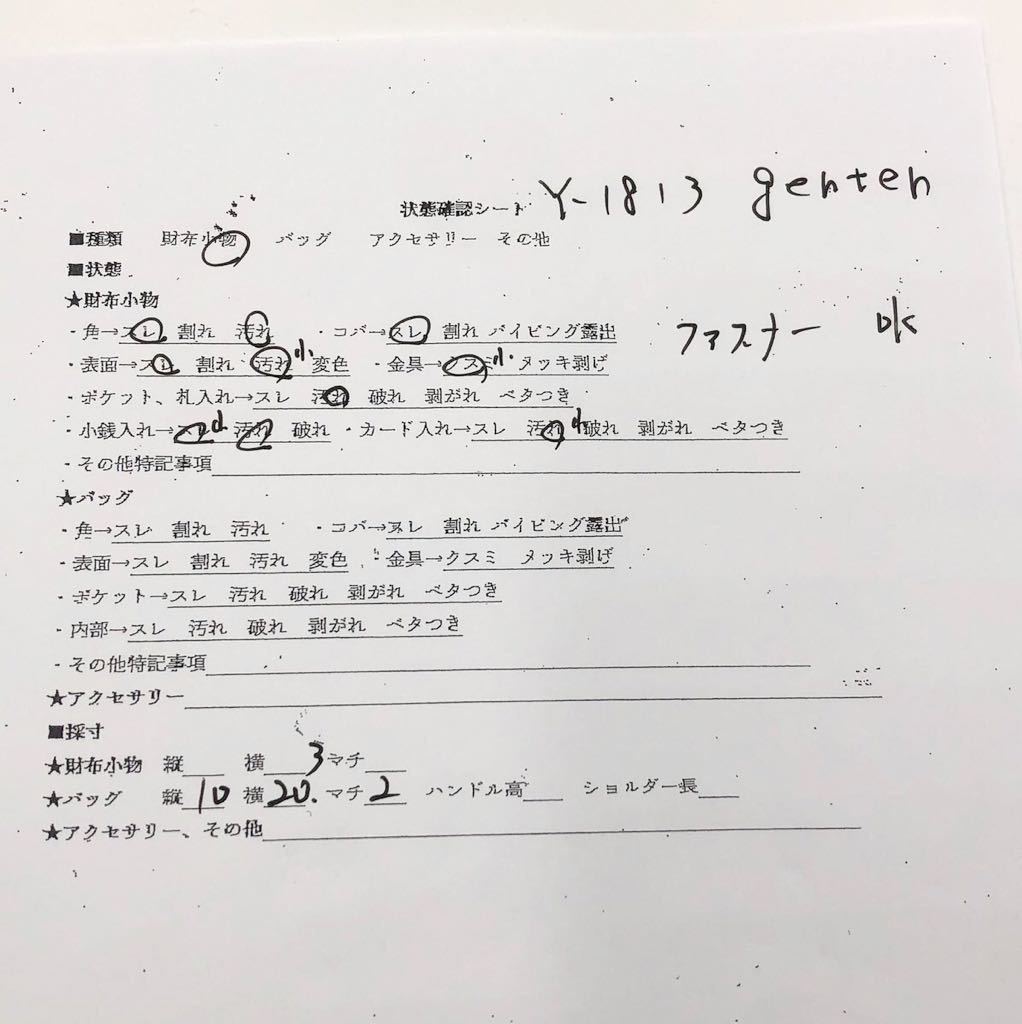 状態確認シート Y-1813 genten
■種類 財布小物 バッグ アクセサリー その他
■状態
★財布小物
・角→スレ 割れ 汚れ ・コバ→スレ 割れ パイピング露出 ファスナー ok
・表面→スレ 割れ 汚れ小 変色 ・金具→クスミ小 メッキ剥げ
・ポケット、札入れ→スレ 汚れ 破れ 剥がれ ベタつき
・小銭入れ→スレ小 汚れ 破れ ・カード入れ→スレ 汚れ小 破れ 剥がれ ベタつき
・その他特記事項
★バッグ
・角→スレ 割れ 汚れ ・コバ→スレ 割れ パイピング露出
・表面→スレ 割れ 汚れ 変色 ・金具→クスミ メッキ剥げ
・ポケット→スレ 汚れ 破れ 剥がれ ベタつき
・内部→スレ 汚れ 破れ 剥がれ ベタつき
・その他特記事項
★アクセサリー
■採寸
★財布小物 縦 横 3 マチ
★バッグ 縦10 横20. マチ2 ハンドル高 ショルダー長
★アクセサリー、その他